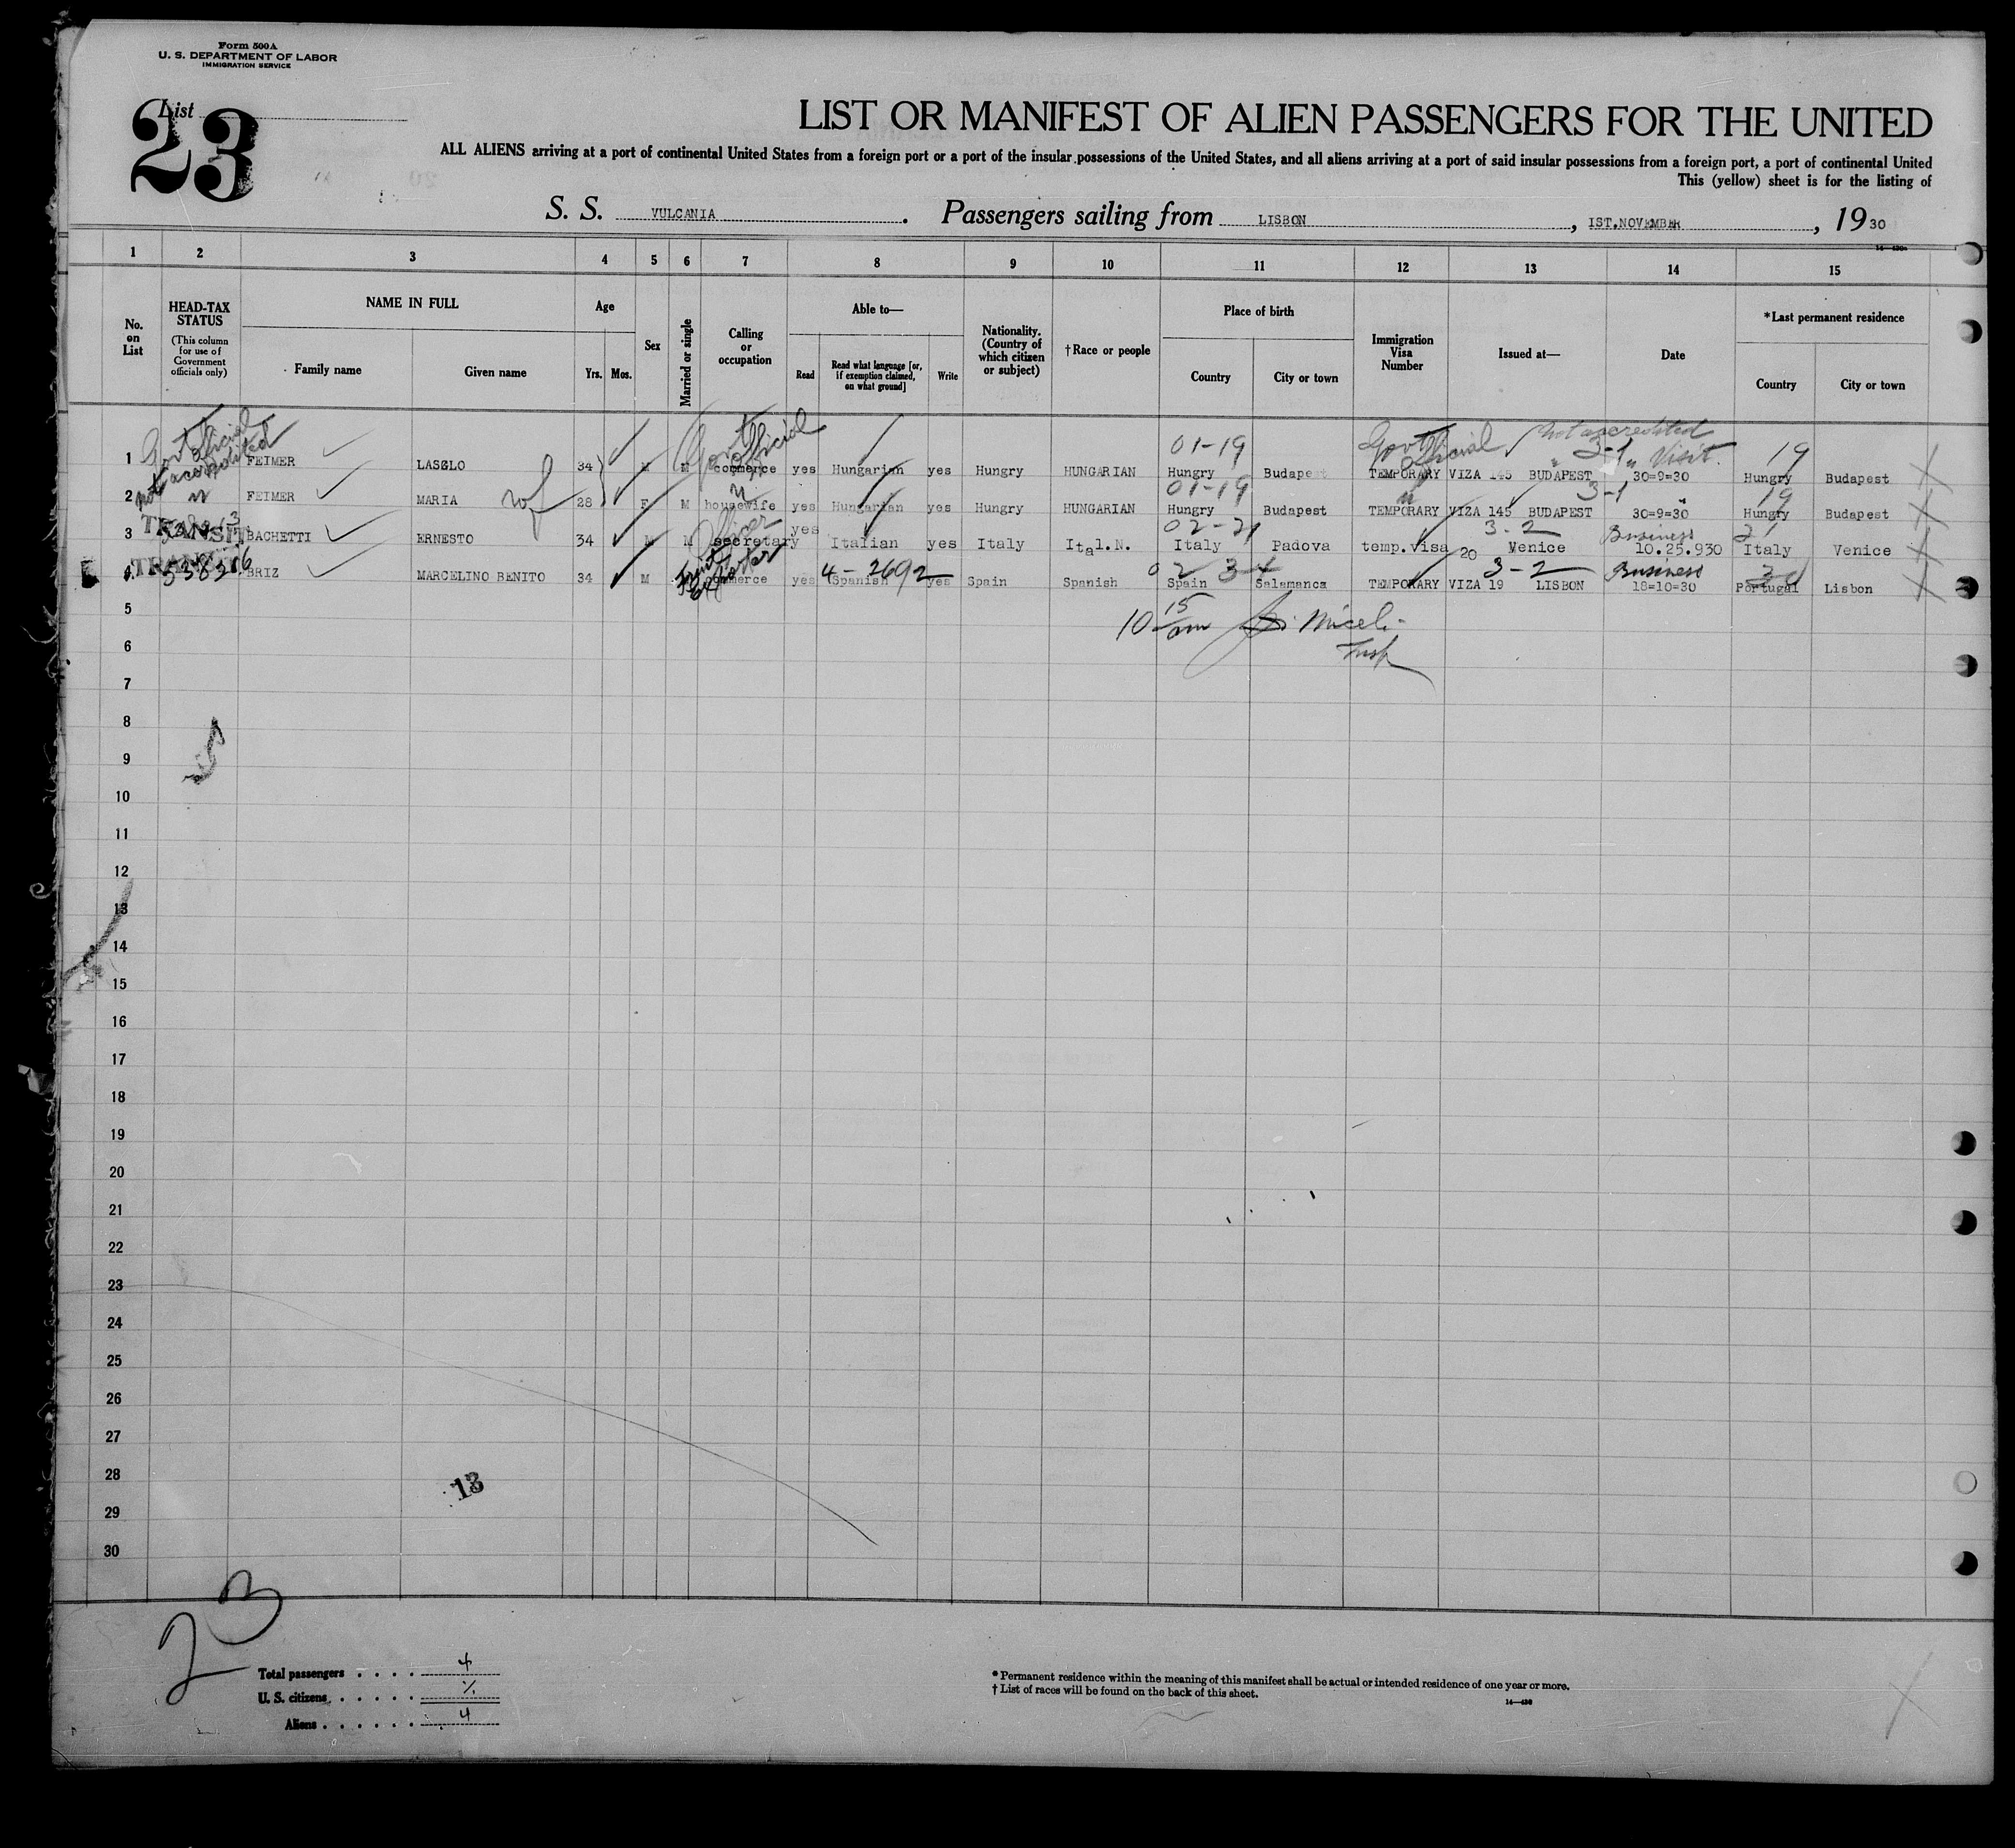 Form 500A
U. S. DEPARTMENT OF LABOR
IMMIGRATION SERVICE
List
23
LIST OR MANIFEST OF ALIEN PASSENGERS FOR THE UNITED
ALL ALIENS arriving at a port of continental United States from a foreign port or a port of the insular possessions of the United States, and all aliens arriving at a port of said insular possessions from a foreign port, a port of continental United
This (yellow) sheet is for the listing of
S. S. VULCANIA. Passengers sailing from LISBON, 1ST.NOVEMBER, 1930
1 2 3 4 5 6 7 8 9 10 11 12 13 14 15
No. on List
HEAD-TAX STATUS
(This column for use of Government officials only)
NAME IN FULL
Family name
Given name
Age
Yrs. Mos.
Sex
Married or single
Calling or occupation
Able to—
Read
Read what language [or, if exemption claimed, on what ground]
Write
Nationality. (Country of which citizen or subject)
†Race or people
Place of birth
Country
City or town
Immigration Visa Number
Issued at—
Date
*Last permanent residence
Country
City or town
Govt official not accredited
Govt official
01-19
Govt official
Not accredited
3-1 " Visit
19
1 FEIMER LASZLO 34 M M commerce yes Hungarian yes Hungry HUNGARIAN Hungry Budapest TEMPORARY VIZA 145 BUDAPEST 30=9=30 Hungry Budapest
" wf " 01-19 " 3-1 " 19
2 FEIMER MARIA 28 F M housewife yes Hungarian yes Hungry HUNGARIAN Hungry Budapest TEMPORARY VIZA 145 BUDAPEST 30=9=30 Hungry Budapest
TRANSIT
02-21 3-2 Business 21
3 BACHETTI ERNESTO 34 M M secretary yes Italian yes Italy Ital.N. Italy Padova temp.visa 20 Venice 10.25.930 Italy Venice
TRANSIT
538316 Fruit exporter 4-2692 02 34 3-2 Business
4 BRIZ MARCELINO BENITO 34 M commerce yes Spanish yes Spain Spanish Spain Salamanca TEMPORARY VIZA 19 LISBON 18=10=30 Portugal Lisbon
5
10 15 am Miceli
Insp
6
7
8
9
10
11
12
13
14
15
16
17
18
19
20
21
22
23
24
25
26
27
28
13
29
30
23
Total passengers . . . . 4
U. S. citizens . . . . .
Aliens . . . . . . . 4
* Permanent residence within the meaning of this manifest shall be actual or intended residence of one year or more.
† List of races will be found on the back of this sheet.